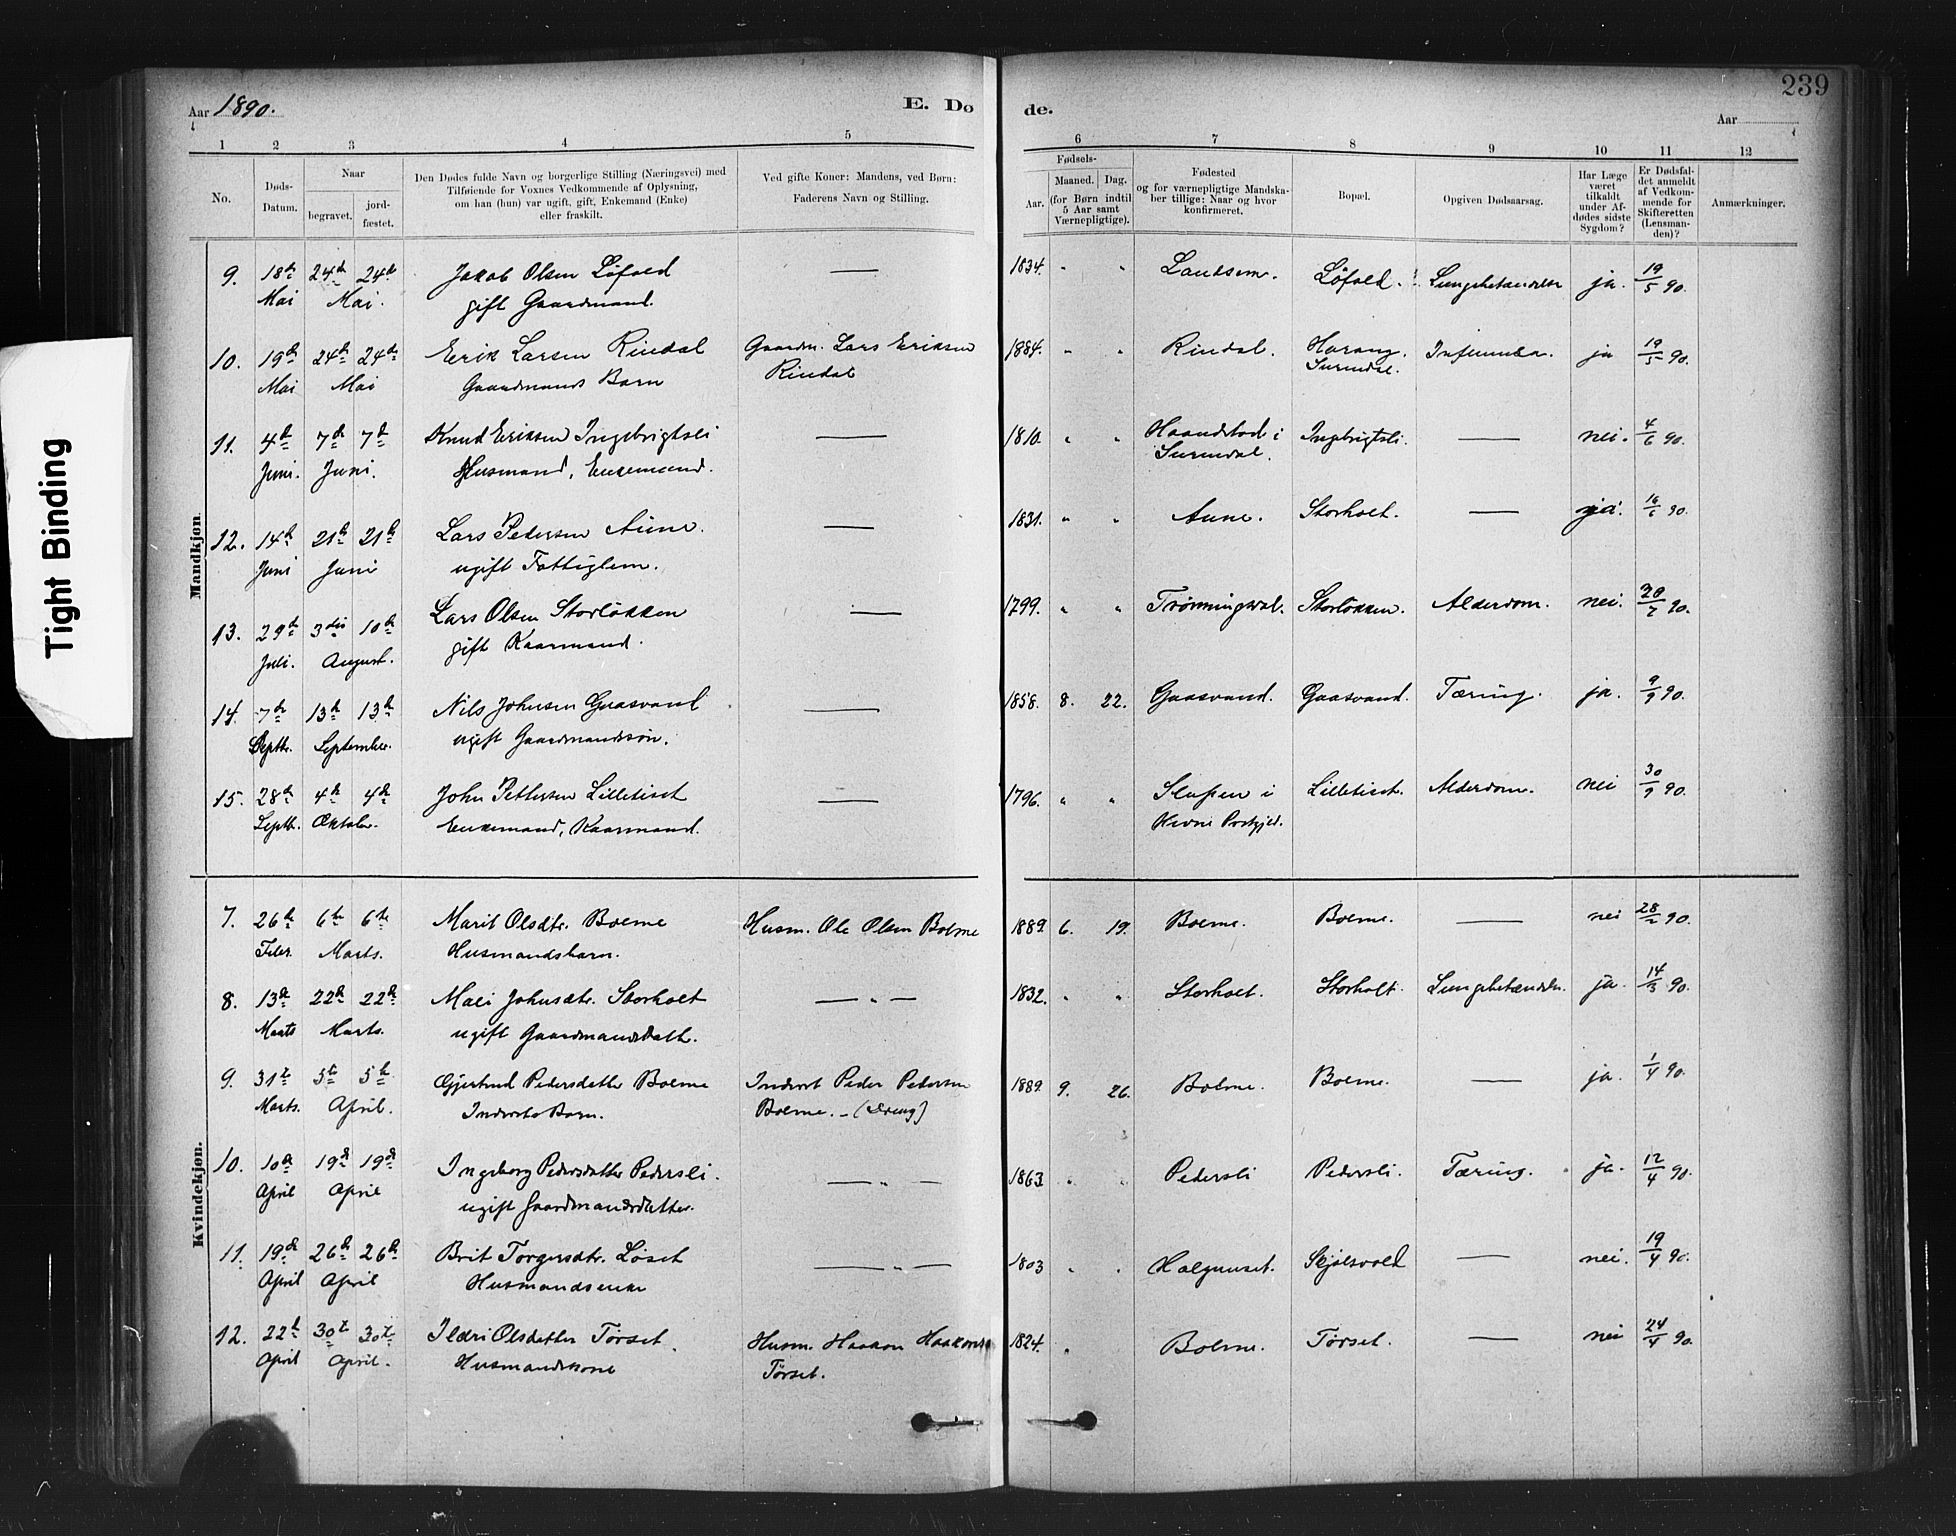 Tight Binding
239
Aar 1890.
E. Dø
de.
Aar
1 2 3 4 5
6 7 8 9 10 11 12
No.
Døds-
Datum.
Naar
begravet.
jord-
fæstet.
Den Dødes fulde Navn og borgerlige Stilling (Næringsvei) med
Tilføiende for Voxnes Vedkommende af Oplysning,
om han (hun) var ugift, gift, Enkemand (Enke)
eller fraskilt.
Ved gifte Koner: Mandens, ved Børn:
Faderens Navn og Stilling.
Fødsels-
Aar.
Maaned.
Dag.
(for Børn indtil
5 Aar samt
Værnepligtige).
Fødested
og for værnepligtige Mandska-
ber tillige: Naar og hvor
konfirmeret.
Bopæl.
Opgiven Dødsaarsag.
Har Læge
været
tilkaldt
under Af-
dødes sidste
Sygdom?
Er Dødsfal-
det anmeldt
af Vedkom-
mende for
Skifteretten
(Lensman-
den)?
Anmærkninger.
Mandkjøn.
9. 18de 24de 24de Jakob Olsen Løfald — 1834. " " Landsem. Løfald. Lungebetændelse ja. 19/5 90.
Mai Mai. gift Gaardmand.
10. 19de 24de 24de Erik Larsen Rindal Gaardm. Lars Eriksen 1884. " " Rindal. Harang. Influenza. ja 19/5 90.
Mai Mai Gaardmands Barn Rindal Surendal.
11. 4de 7de 7de Knud Eriksen Ingebrigtsli — 1810. " " Haandstad i Ingebrigtsli. — nei. 4/6 90.
Juni. Juni. Husmand, Enkemand. Surendal.
12. 14de 21de 21de Lars Pedersen Aune. — 1831. " " Aune. Storholt. — ja. 16/6 90.
Juni Juni ugift Fattiglem.
13. 29de 3die 10de Lars Olsen Storløkken — 1799. " " Trønningsdal. Storløkken. Alderdom. nei. 30/7 90.
Juli. August. gift Kaarmand.
14. 7de 13de 13de Nils Johnsen Gaasvand — 1858. 8. 22. Gaasvand. Gaasvand. Tæring. ja. 9/9 90.
Septbr. September. ugift Gaardmandssøn.
15. 28de 4de 4de John Pettersen Lilletiset — 1796. " " Slupen i Lilletiset. Alderdom. nei 30/9 90.
Septb. Oktober. Enkemand, Kaarmand. Hevne Prstgjld.
Kvindekjøn.
7. 26de 6te 6te Marit Olsdtr. Bolme Husm. Ole Olsen Bolme 1889. 6. 19. Bolme. Bolme. — nei 28/2 90.
Febr. Marts. Husmandsbarn.
8. 13de 22de 22de Mali Johnsdtr. Storholt — " — 1832. " " Storholt. Storholt. Lungebetændelse. ja. 14/3 90.
Marts Marts. ugift Gaardmandsdatt.
9. 31te 5te 5te Gjertrud Pedersdatter Bolme Inderst Peder Pedersen 1889. 9. 26. Bolme. Bolme. — ja. 1/4 90.
Marts. April. Inderste Barn. Bolme. - (Dreng)
10. 10de 19de 19de Ingeborg Pedersdatter Pedersli. — " — 1863. " " Pedersli Pedersli. Tæring. ja. 12/4 90.
April April ugift Gaardmandsdatter.
11. 19de 26de 26de Brit Torgersdtr. Løset — " — 1803 " " Halgunset. Skjølsvold — nei. 19/4 90.
April April Husmandsenke
12. 22de 30te 30te Ildri Olsdatter Tørset Husm. Haakon Haakonsen 1824. " Bolme. Tørset. — nei 24/4 90.
April April. Husmandskone Tørset.